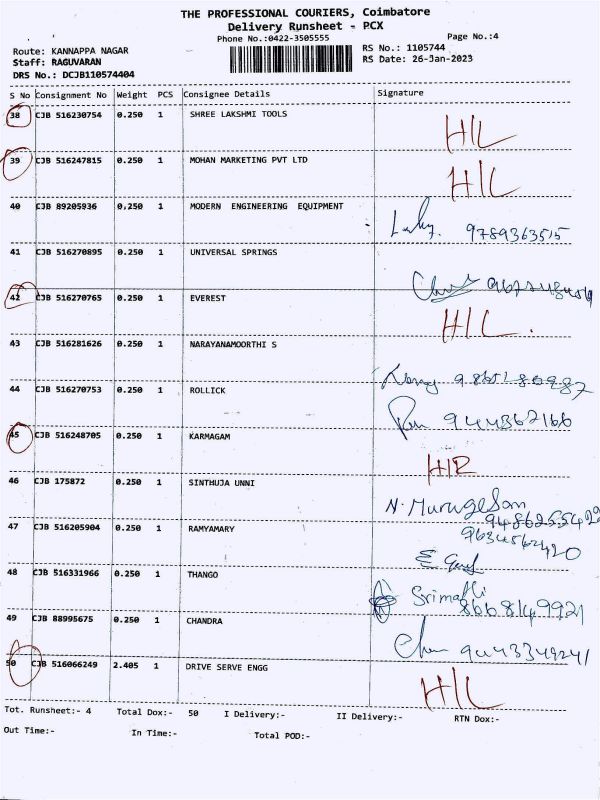 THE PROFESSIONAL COURIERS, Coimbatore
Delivery Runsheet - PCX
Phone No.:0422-3505555
Page No.:4
Route: KANNAPPA NAGAR
RS No.: 1105744
Staff: RAGUVARAN
RS Date: 26-Jan-2023
DRS No.: DCJB110574404
S No Consignment No Weight PCS Consignee Details Signature
38 CJB 516230754 0.250 1 SHREE LAKSHMI TOOLS
H/L
39 CJB 516247815 0.250 1 MOHAN MARKETING PVT LTD
H/L
40 CJB 89205936 0.250 1 MODERN ENGINEERING EQUIPMENT
9789363515
41 CJB 516270895 0.250 1 UNIVERSAL SPRINGS
42 CJB 516270765 0.250 1 EVEREST
H/L.
43 CJB 516281626 0.250 1 NARAYANAMOORTHI S
44 CJB 516270753 0.250 1 ROLLICK
944362166
45 CJB 516248705 0.250 1 KARMAGAM
H/R
46 CJB 175872 0.250 1 SINTHUJA UNNI
N. Murugesan
9486255429
47 CJB 516205904 0.250 1 RAMYAMARY
9634562420
48 CJB 516331966 0.250 1 THANGO
Srimathi
8668149921
49 CJB 88995675 0.250 1 CHANDRA
9443349241
50 CJB 516066249 2.405 1 DRIVE SERVE ENGG
H/L
Tot. Runsheet:- 4 Total Dox:- 50 I Delivery:- II Delivery:- RTN Dox:-
Out Time:- In Time:- Total POD:-